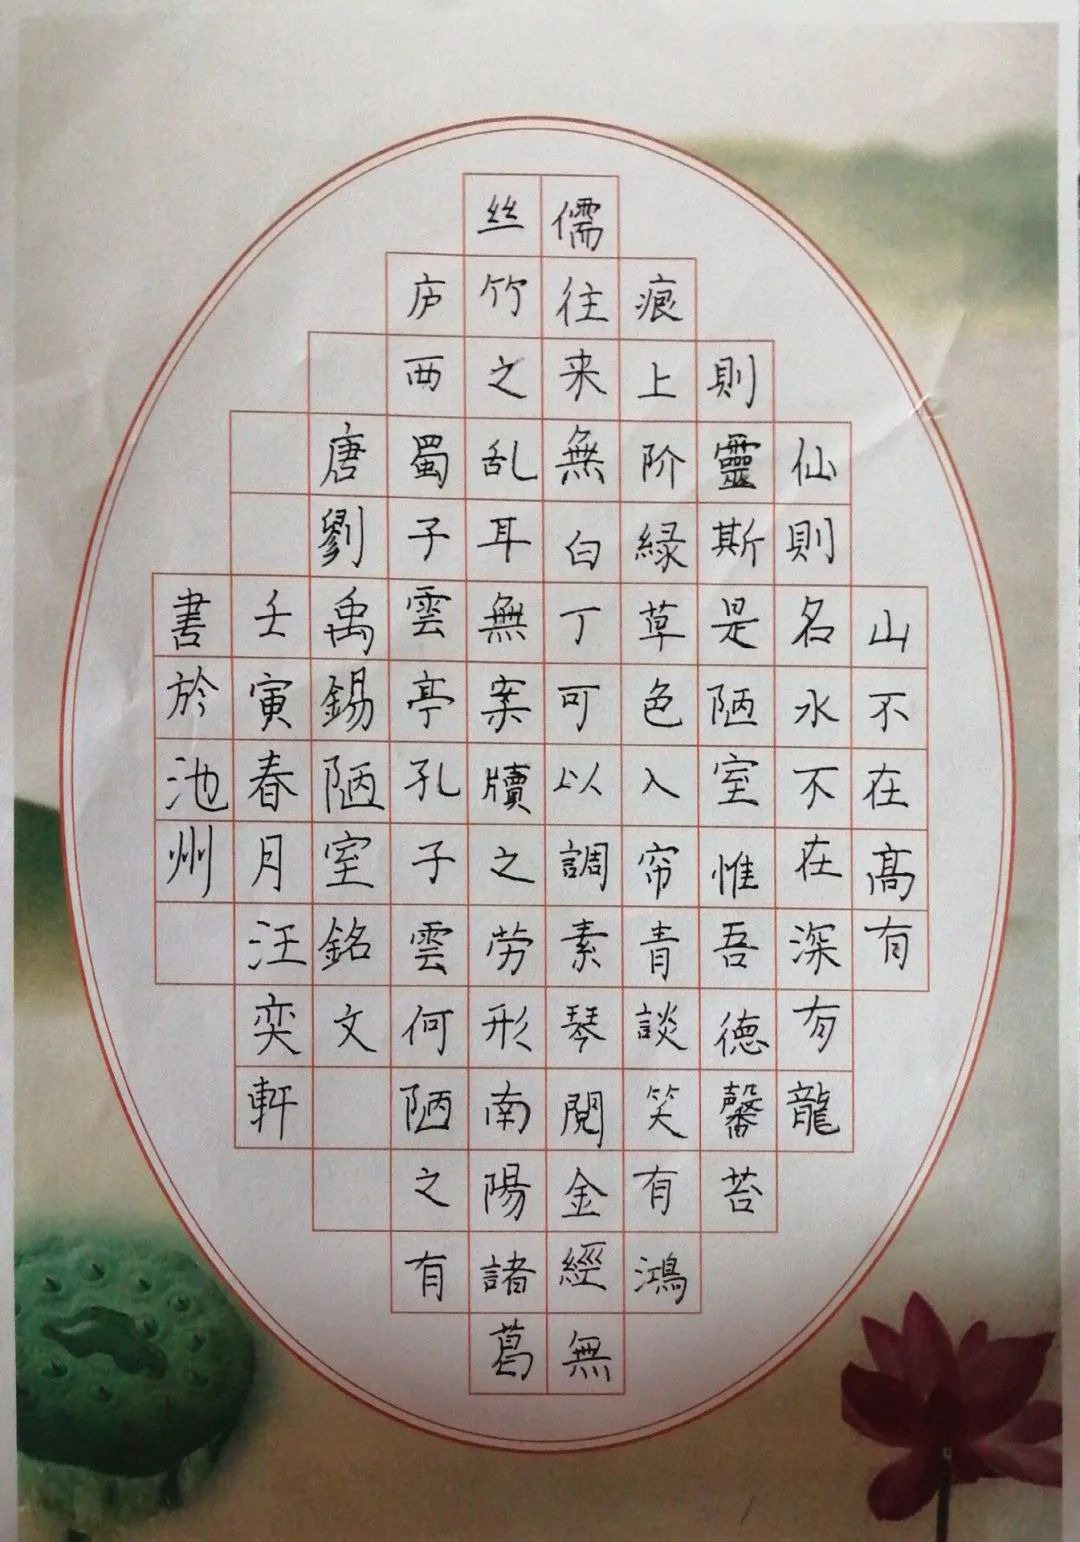 山不在高有
仙則名水不在深有龍
則靈斯是陋室惟吾德馨苔
痕上阶緑草色入帘青談笑有鴻
儒往来無白丁可以調素琴閱金經無
丝竹之乱耳無案牘之劳形南陽諸葛
庐西蜀子雲亭孔子雲何陋之有
唐劉禹錫陋室銘文
壬寅春月汪奕軒
書於池州